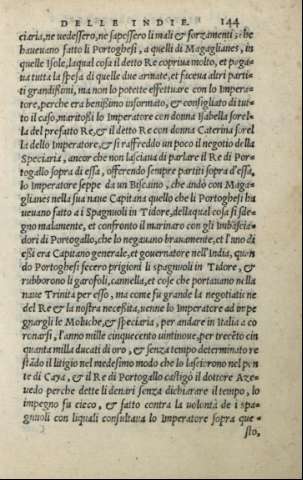 DELLE INDIE. 144
ciaria, ne uedessero, ne sapessero li mali & forzamenti, che
haueuano fatto li Portoghesi, a quelli di Magaglianes, in
quelle Isole, laqual cosa il detto Re copriua molto, et paga
ua tutta la spesa di quelle due armate, et faceua altri parti-
ti grandissimi, ma non lo potette effettuare con lo Impera-
tore, perche era benissimo informato, & consigliato di tut-
to il caso, maritossi lo Imperatore con donna Isabella sorel-
la del prefatto Re, & il detto Re con donna Caterina sorel
la dello Imperatore, & si raffreddo un poco il negotio della
Speciaria, ancor che non lasciaua di parlare il Re di Por-
togallo sopra di essa, offerendo sempre partiti sopra d'essa,
lo Imperatore seppe da un Biscaino, che andò con Maga-
glianes nella sua naue Capitana quello che li Portoghesi ha
ueuano fatto a i Spagnuoli in Tidore, della qual cosa si sde-
gno malamente, et confronto il marinaro con gli Imbascia-
dori di Portogallo, che lo negauano brauamente, et l'uno di
essi era Capitano generale, et gouernatore nell'India, quan-
do Portoghesi fecero prigioni li spagnuoli in Tidore, &
rubborono li garofoli, cannella, et cose che portauano nella
naue Trinità per esso, ma come fu grande la negotiatione
del Re & la nostra necessita, uenne lo Imperatore ad impe
gnargli le Moluche, & speciaria, per andare in Italia a co
ronarsi, l'anno mille cinquecento uintinoue, per trecēto cin
quanta milla ducati di oro, & senza tempo determinato re
stādo il litigio nel medesimo modo che lo lasciorono nel pon
te di Caya, & il Re di Portogallo castigò il dottore Aze-
uedo perche dette li denari senza dichiarare il tempo, lo
impegno fu cieco, & fatto contra la uolontà de i spa-
gnuoli con liquali consultaua lo Imperatore sopra que-
sto,